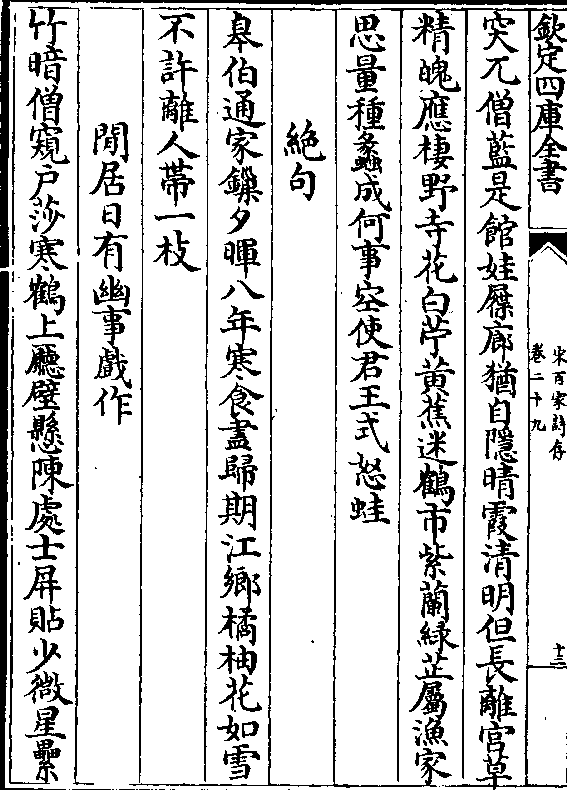 欽定四庫全書
宋百家詩存
卷二十九
十三
突兀僧藍是館娃屧廊猶自隱晴霞清明但長離宫草
精魄應棲野寺花白苧黄蕉迷鶴市紫蘭緑芷屬漁家
思量種蠡成何事空使君王式怒蛙
絶句
皋伯通家鏁夕暉八年寒食盡歸期江鄉橘柚花如雪
不許離人帶一枝
閒居日有幽事戲作
竹暗僧窺户莎寒鶴上廳壁懸陳處士屏貼少微星纍